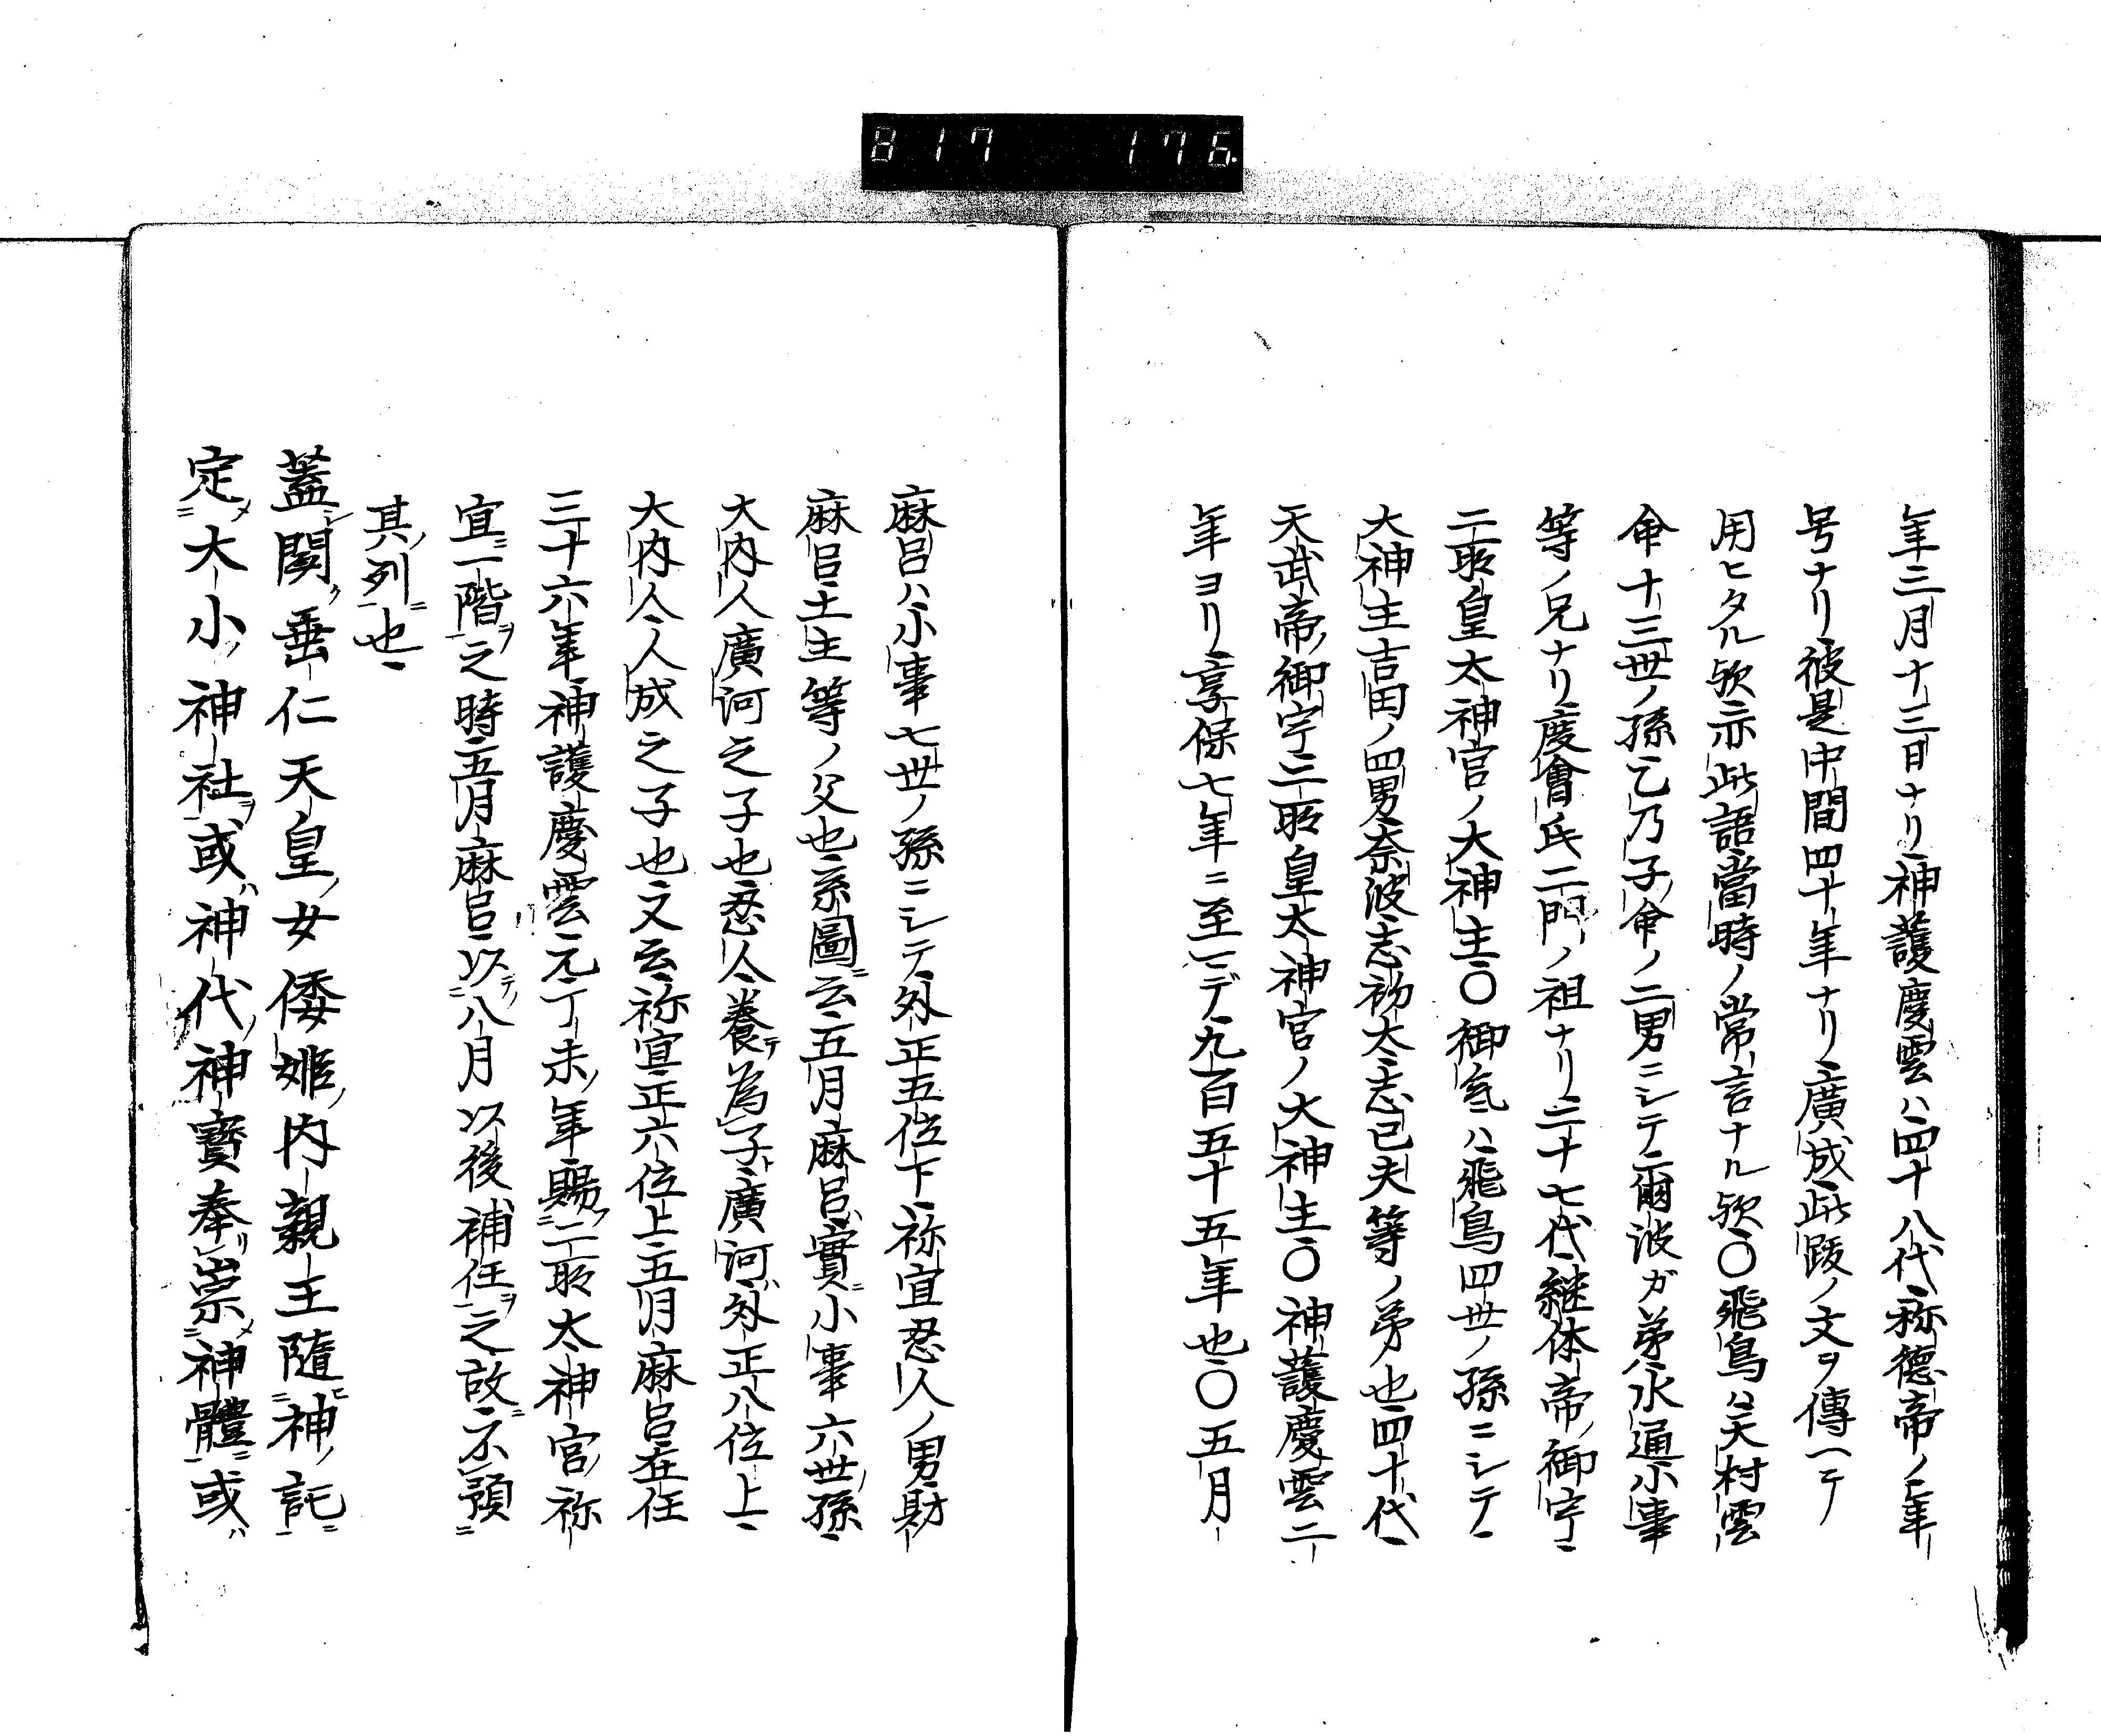 817 176.
年三月十三日ナリ神護慶雲ハ四十八代称徳帝ノ年
号ナリ彼是中間四十年ナリ廣成此跋ノ文ヲ傳ヘテ
用ヒタル欤示此語當時ノ常言ナル欤〇飛鳥ハ天村雲
命十三世ノ孫乙乃子命ノ二男ニシテ爾波ガ弟水通小事
等ノ兄ナリ度會氏二門ノ祖ナリ二十七代継体帝ノ御宇
二所皇太神宮ノ大神主〇御氣ハ飛鳥四世ノ孫ニシテ
大神主吉田ノ四男奈波志初太志己夫等ノ弟也四十代
天武帝ノ御宇二所皇太神宮ノ大神主〇神護慶雲二
年ヨリ享保七年ニ至マデ九百五十五年也〇五月
麻呂ハ小事七世ノ孫ニシテ外正五位下祢宜忍人ノ男財
麻呂土主等ノ父也系圖ニ云五月麻呂ハ實ニ小事六世ノ孫
大内人廣河之子也忍人養テ為子ト廣河ハ外正八位上
大内人人成之子也又云祢宜正六位上五月麻呂在任
三十六年神護慶雲元丁未ノ年賜二所太神宮ノ祢
宜ニ一階ヲ之時五月麻呂以テノ八月以後補任ヲ之故ニ不預
其ノ列ニ也
蓋シ聞ク垂仁天皇ノ女倭姫ノ内親王隨ヒ神ノ託ニ
定メ大小ノ神社ヲ或ハ神代ノ神寳奉リ崇メ神體ニ或ハ